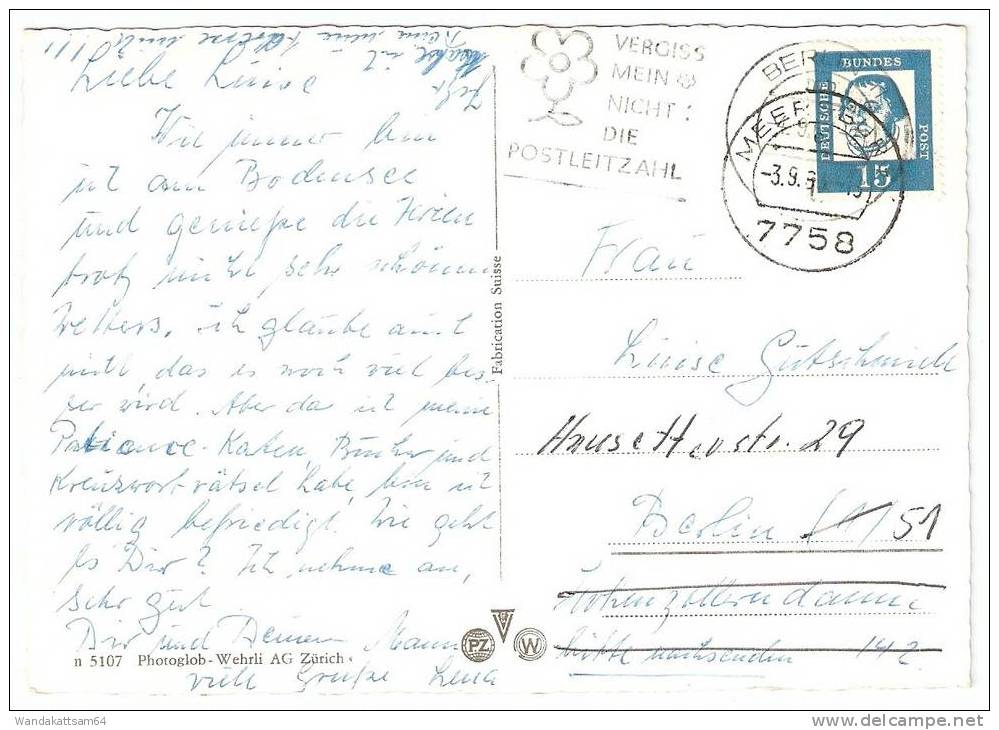 Liebe Luise
Wie immer bin
ich am Bodensee
und genieße die Ferien
trotz nicht sehr schönen
Wetters. Ich glaube auch
nicht, das es noch viel bes-
ser wird. Aber da ich meine
Patience-Karten, Bücher und
Kreuzworträtsel habe, bin ich
völlig befriedigt. Wie geht
es Dir? Ich nehme an,
sehr gut.
Dir und Deinem Mann
viele Grüße Lena
n 5107 Photoglob-Wehrli AG Zürich
Fabrication Suisse
PZ
W
VERGISS
MEIN
NICHT:
DIE
POSTLEITZAHL
MEERSBURG
-3.9.6
7758
DEUTSCHE
BUNDES
POST
15
Frau
Luise Gutschmidt
str. 29
Berlin 51
Hohenzollerndamm
bitte nachsenden 142
Wandakattsam64
delcampe.net